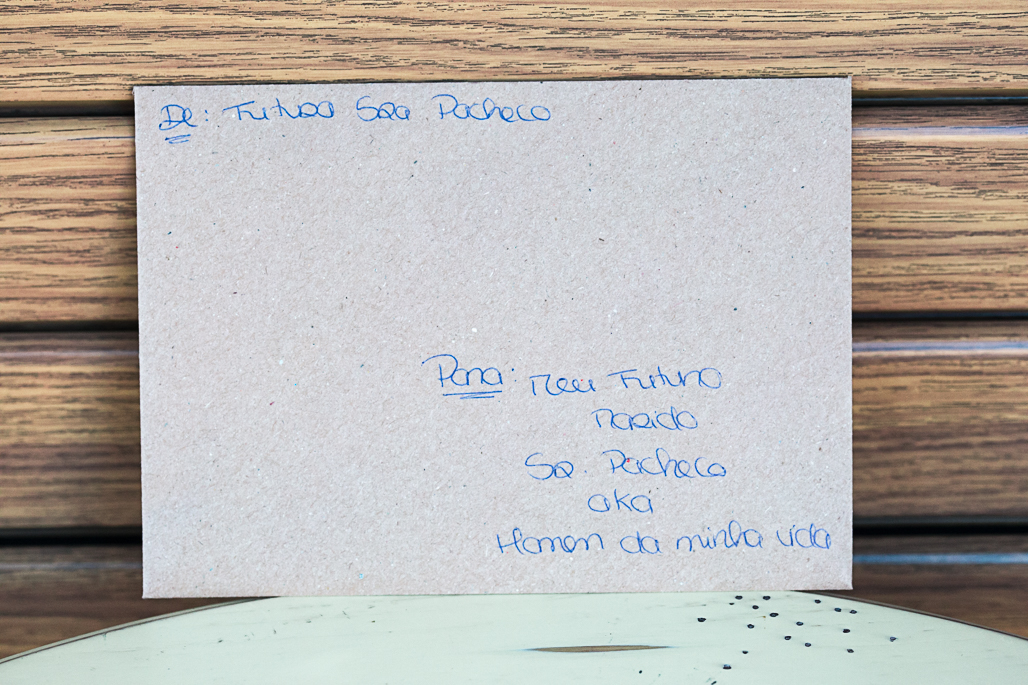 De: Futura Sra Pacheco
Para: Meu Futuro
Marido
Sr. Pacheco
aka
Homem da minha vida